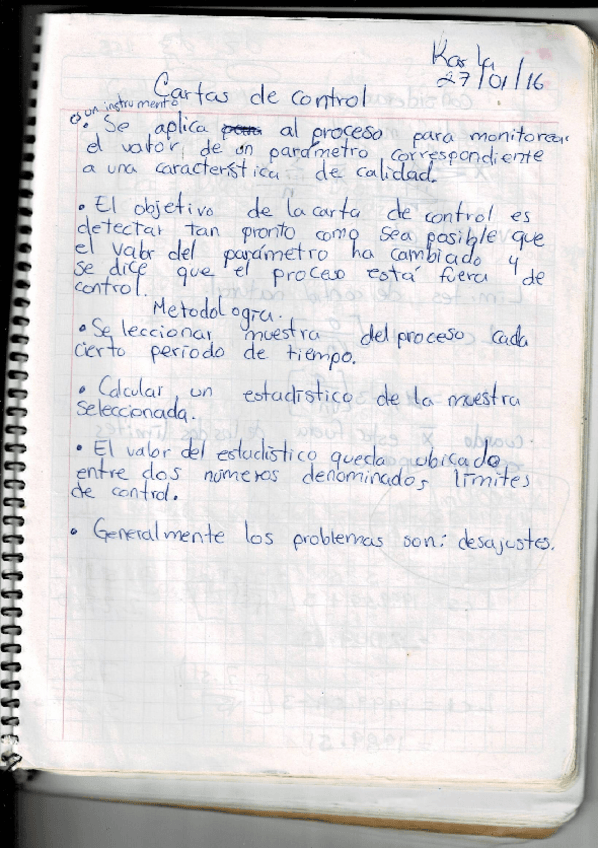 Karla
27/01/16
Cartas de control
es un instrumento
• Se aplica para al proceso para monitorear
el valor de un parámetro correspondiente
a una característica de calidad.
• El objetivo de la carta de control es
detectar tan pronto como sea posible que
el valor del parámetro ha cambiado y
se dice que el proceso está fuera de
control.
Metodología.
• Seleccionar muestra del proceso cada
cierto periodo de tiempo.
• Calcular un estadístico de la muestra
seleccionada.
• El valor del estadístico queda ubicado
entre dos números denominados límites
de control.
• Generalmente los problemas son: desajustes.